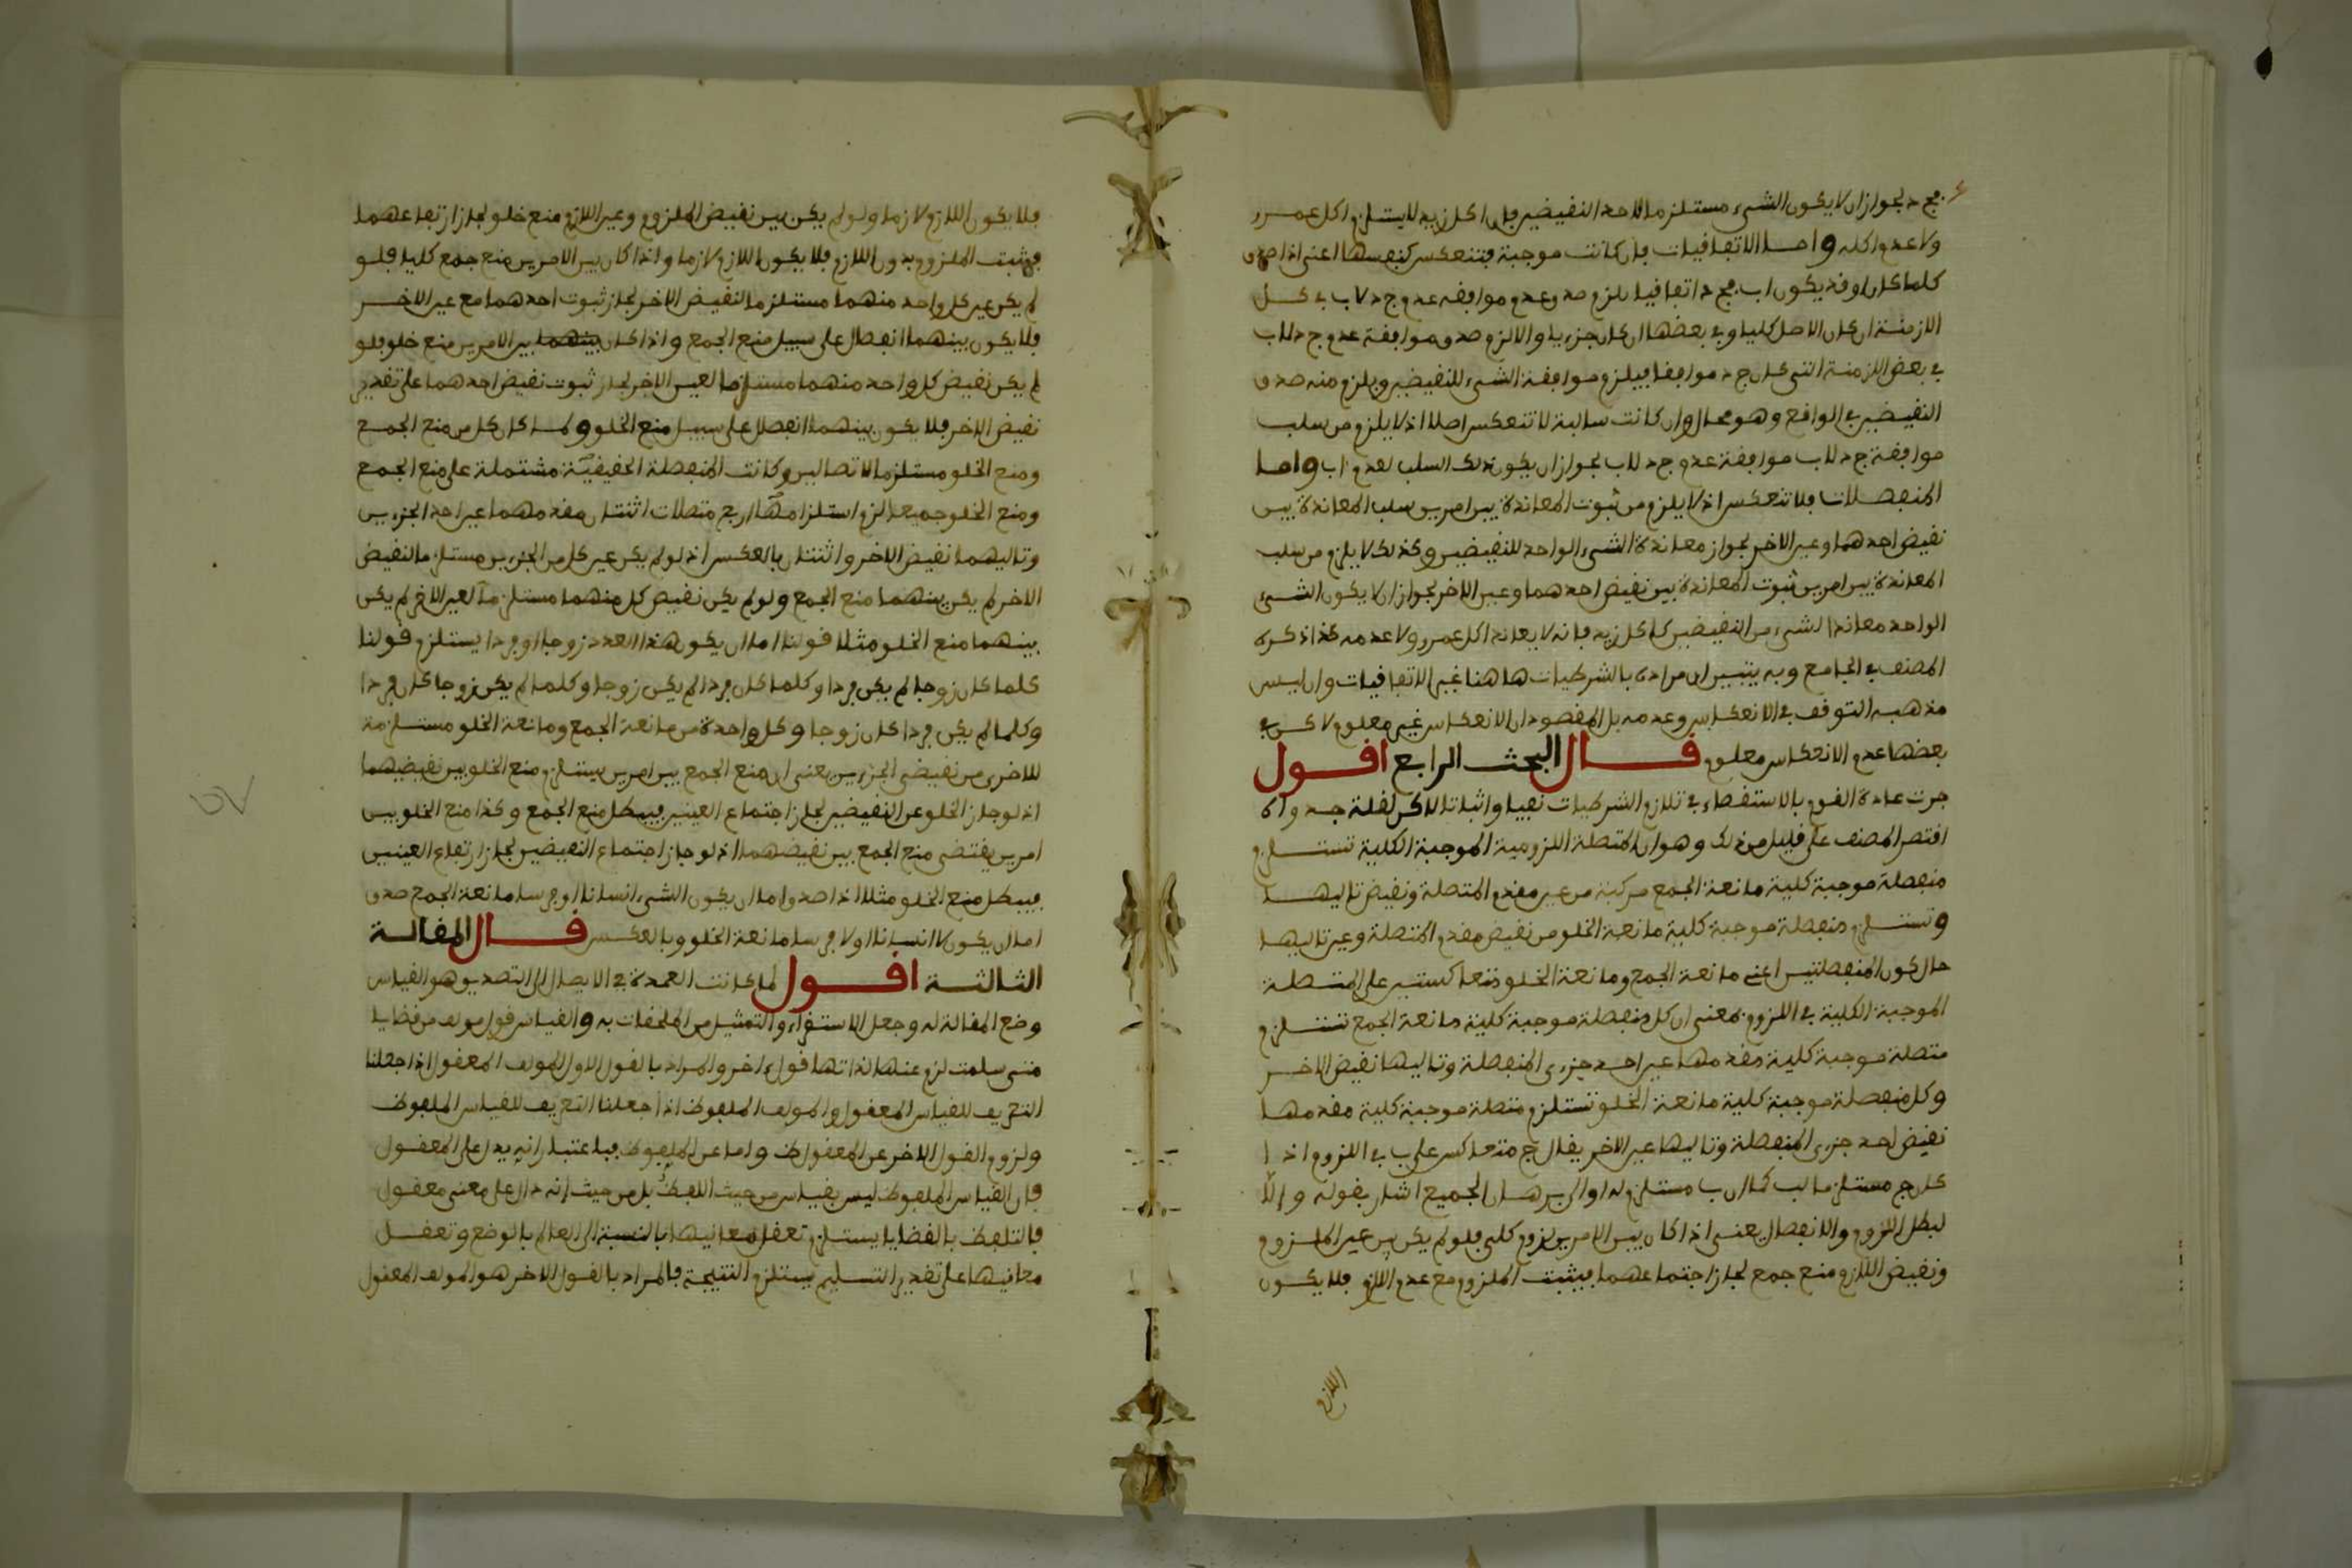 فج د لجواز ان لا يكون الشيء مستلزما لاحد النقيضين فان اكل زيد لا يستلزم اكل عمرو
ولا عدم اكله واما الاتفاقيات فان كانت موجبة فتنعكس كنفسها اعني اذا صدق
كلما كان او قد يكون اب فج د اتفاقيا يلزم صدق عدم موافقة عدم ج د لاب في كل
الازمنة ان كان الاصل كليا وفي بعضها ان كان جزءيا والا لزم صدق موافقة عدم ج د لاب
في بعض الازمنة التي كان ج د موافقا فيلزم موافقة الشيء للنقيضين ويلزم منه صدق
النقيضين في الواقع وهو محال وان كانت سالبة لا تنعكس اصلا اذ لا يلزم من سلب
موافقة ج د لاب موافقة عدم ج د لاب لجواز ان يكون ذلك السلب لعدم اب واما
المنفصلات فلا تنعكس اذ لا يلزم من ثبوت المعاندة بين امرين سلب المعاندة بين
نقيض احدهما وعين الاخر لجواز معاندة الشيء الواحد للنقيضين وكذلك لا يلزم من سلب
المعاندة بين امرين ثبوت المعاندة بين نقيض احدهما وعين الاخر لجواز ان لا يكون الشيء
الواحد معاندا لشيء من النقيضين كاكل زيد فانه لا يعاند اكل عمرو ولا عدمه كذا ذكره
المصنف في الجامع وبه يتبين ان مراده بالشرطيات هاهنا غير الاتفاقيات وان ليس
مذهبه التوقف في الانعكاس وعدمه بل المقصود ان الانعكاس غير معلوم لاكن في
بعضها عدم الانعكاس معلوم قال البحث الرابع اقول
جرت عادة القوم بالاستقصاء في تلازم الشرطيات نفيا واثباتا لاكن لقلة جدواه
اقتصر المصنف على قليل من ذلك وهو ان المتصلة اللزومية الموجبة الكلية تستلزم
منفصلة موجبة كلية مانعة الجمع مركبة من عين مقدم المتصلة ونقيض تاليها
وتستلزم منفصلة موجبة كلية مانعة الخلو من نقيض مقدم المتصلة وعين تاليها
حال كون المنفصلتين اعني مانعة الجمع ومانعة الخلو متعاكستين على المتصلة
الموجبة الكلية في اللزوم بمعنى ان كل منفصلة موجبة كلية مانعة الجمع تستلزم
متصلة موجبة كلية مقدمها عين احد جزءى المنفصلة وتاليها نقيض الاخر
وكل منفصلة موجبة كلية مانعة الخلو تستلزم متصلة موجبة كلية مقدمها
نقيض احد جزءى المنفصلة وتاليها عين الاخر يقال ج متعاكس على ب في اللزوم اذا
كان ج مستلزما لب كما ان ب مستلزم له والى برهان الجميع اشار بقوله والا
لبطل اللزوم والانفصال يعني اذا كان بين الامرين لزوم كلي فلو لم يكن بين عين الملزوم
ونقيض اللازم منع جمع لجاز اجتماعهما فيثبت الملزوم مع عدم اللازم فلا يكون
اللازم
فلا يكون اللازم لازما ولو لم يكن بين نقيض الملزوم وعين اللازم منع خلو لجاز ارتفاعهما
فيثبت الملزوم بدون اللازم فلا يكون اللازم لازما واذا كان بين الامرين منع جمع كليا فلو
لم يكن عين كل واحد منهما مستلزما لنقيض الاخر لجاز ثبوت احدهما مع عين الاخر
فلا يكون بينهما انفصال على سبيل منع الجمع واذا كان بينهما بين الامرين منع خلو فلو
لم يكن نقيض كل واحد منهما مستلزما لعين الاخر لجاز ثبوت نقيض احدهما على تقدير
نقيض الاخر فلا يكون بينهما انفصال على سبيل منع الخلو ولما كان كل من منع الجمع
ومنع الخلو مستلزما لاتصالين وكانت المنفصلة الحقيقية مشتملة على منع الجمع
ومنع الخلو جميعا لزم استلزامها اربع متصلات اثنتان مقدمهما عين احد الجزءين
وتاليهما نقيض الاخر واثنتان بالعكس اذ لو لم يكن عين كل من الجزءين مستلزما لنقيض
الاخر لم يكن بينهما منع الجمع ولو لم يكن نقيض كل منهما مستلزما لعين الاخر لم يكن
بينهما منع الخلو مثلا قولنا اما ان يكون هذا العدد زوجا او فردا يستلزم قولنا
كلما كان زوجا لم يكن فردا وكلما كان فردا لم يكن زوجا وكلما لم يكن زوجا كان فردا
وكلما لم يكن فردا كان زوجا وكل واحدة من مانعة الجمع ومانعة الخلو مستلزمة
للاخرى من نقيضي الجزءين يعني ان منع الجمع بين امرين يستلزم منع الخلو بين نقيضيهما
اذ لو جاز الخلو عن النقيضين لجاز اجتماع العينين فيبطل منع الجمع وكذا منع الخلو بين
امرين يقتضي منع الجمع بين نقيضهما اذ لو جاز اجتماع النقيضين لجاز ارتفاع العينين
فيبطل منع الخلو مثلا اذا صدق اما ان يكون الشيء انسانا او فرسا مانعة الجمع صدق
اما ان يكون لا انسانا او لا فرسا مانعة الخلو وبالعكس قال المقالة
الثالثة اقول لما كانت العمدة في الايصال الى التصديق هو القياس
وضع المقالة له وجعل الاستقراء والتمثيل من الملحقات به والقياس قول مولف من قضايا
متى سلمت لزم عنها لذاتها قول ءاخر والمراد بالقول الاول المولف المعقول اذا جعلنا
التعريف للقياس المعقول والمولف الملفوظ اذا جعلنا التعريف للقياس الملفوظ
ولزوم القول الاخر عن المعقول ظ واما عن الملفوظ فباعتبار انه يدل على المعقول
فان القياس الملفوظ ليس بقياس من حيث اللفظ بل من حيث انه دال على معنى معقول
فالتلفظ بالقضايا يستلزم تعقل معانيها بالنسبة الى العالم بالوضع وتعقل
معانيها على تقدير التسليم يستلزم النتيجة فالمراد بالقول الاخر هو المولف المعقول